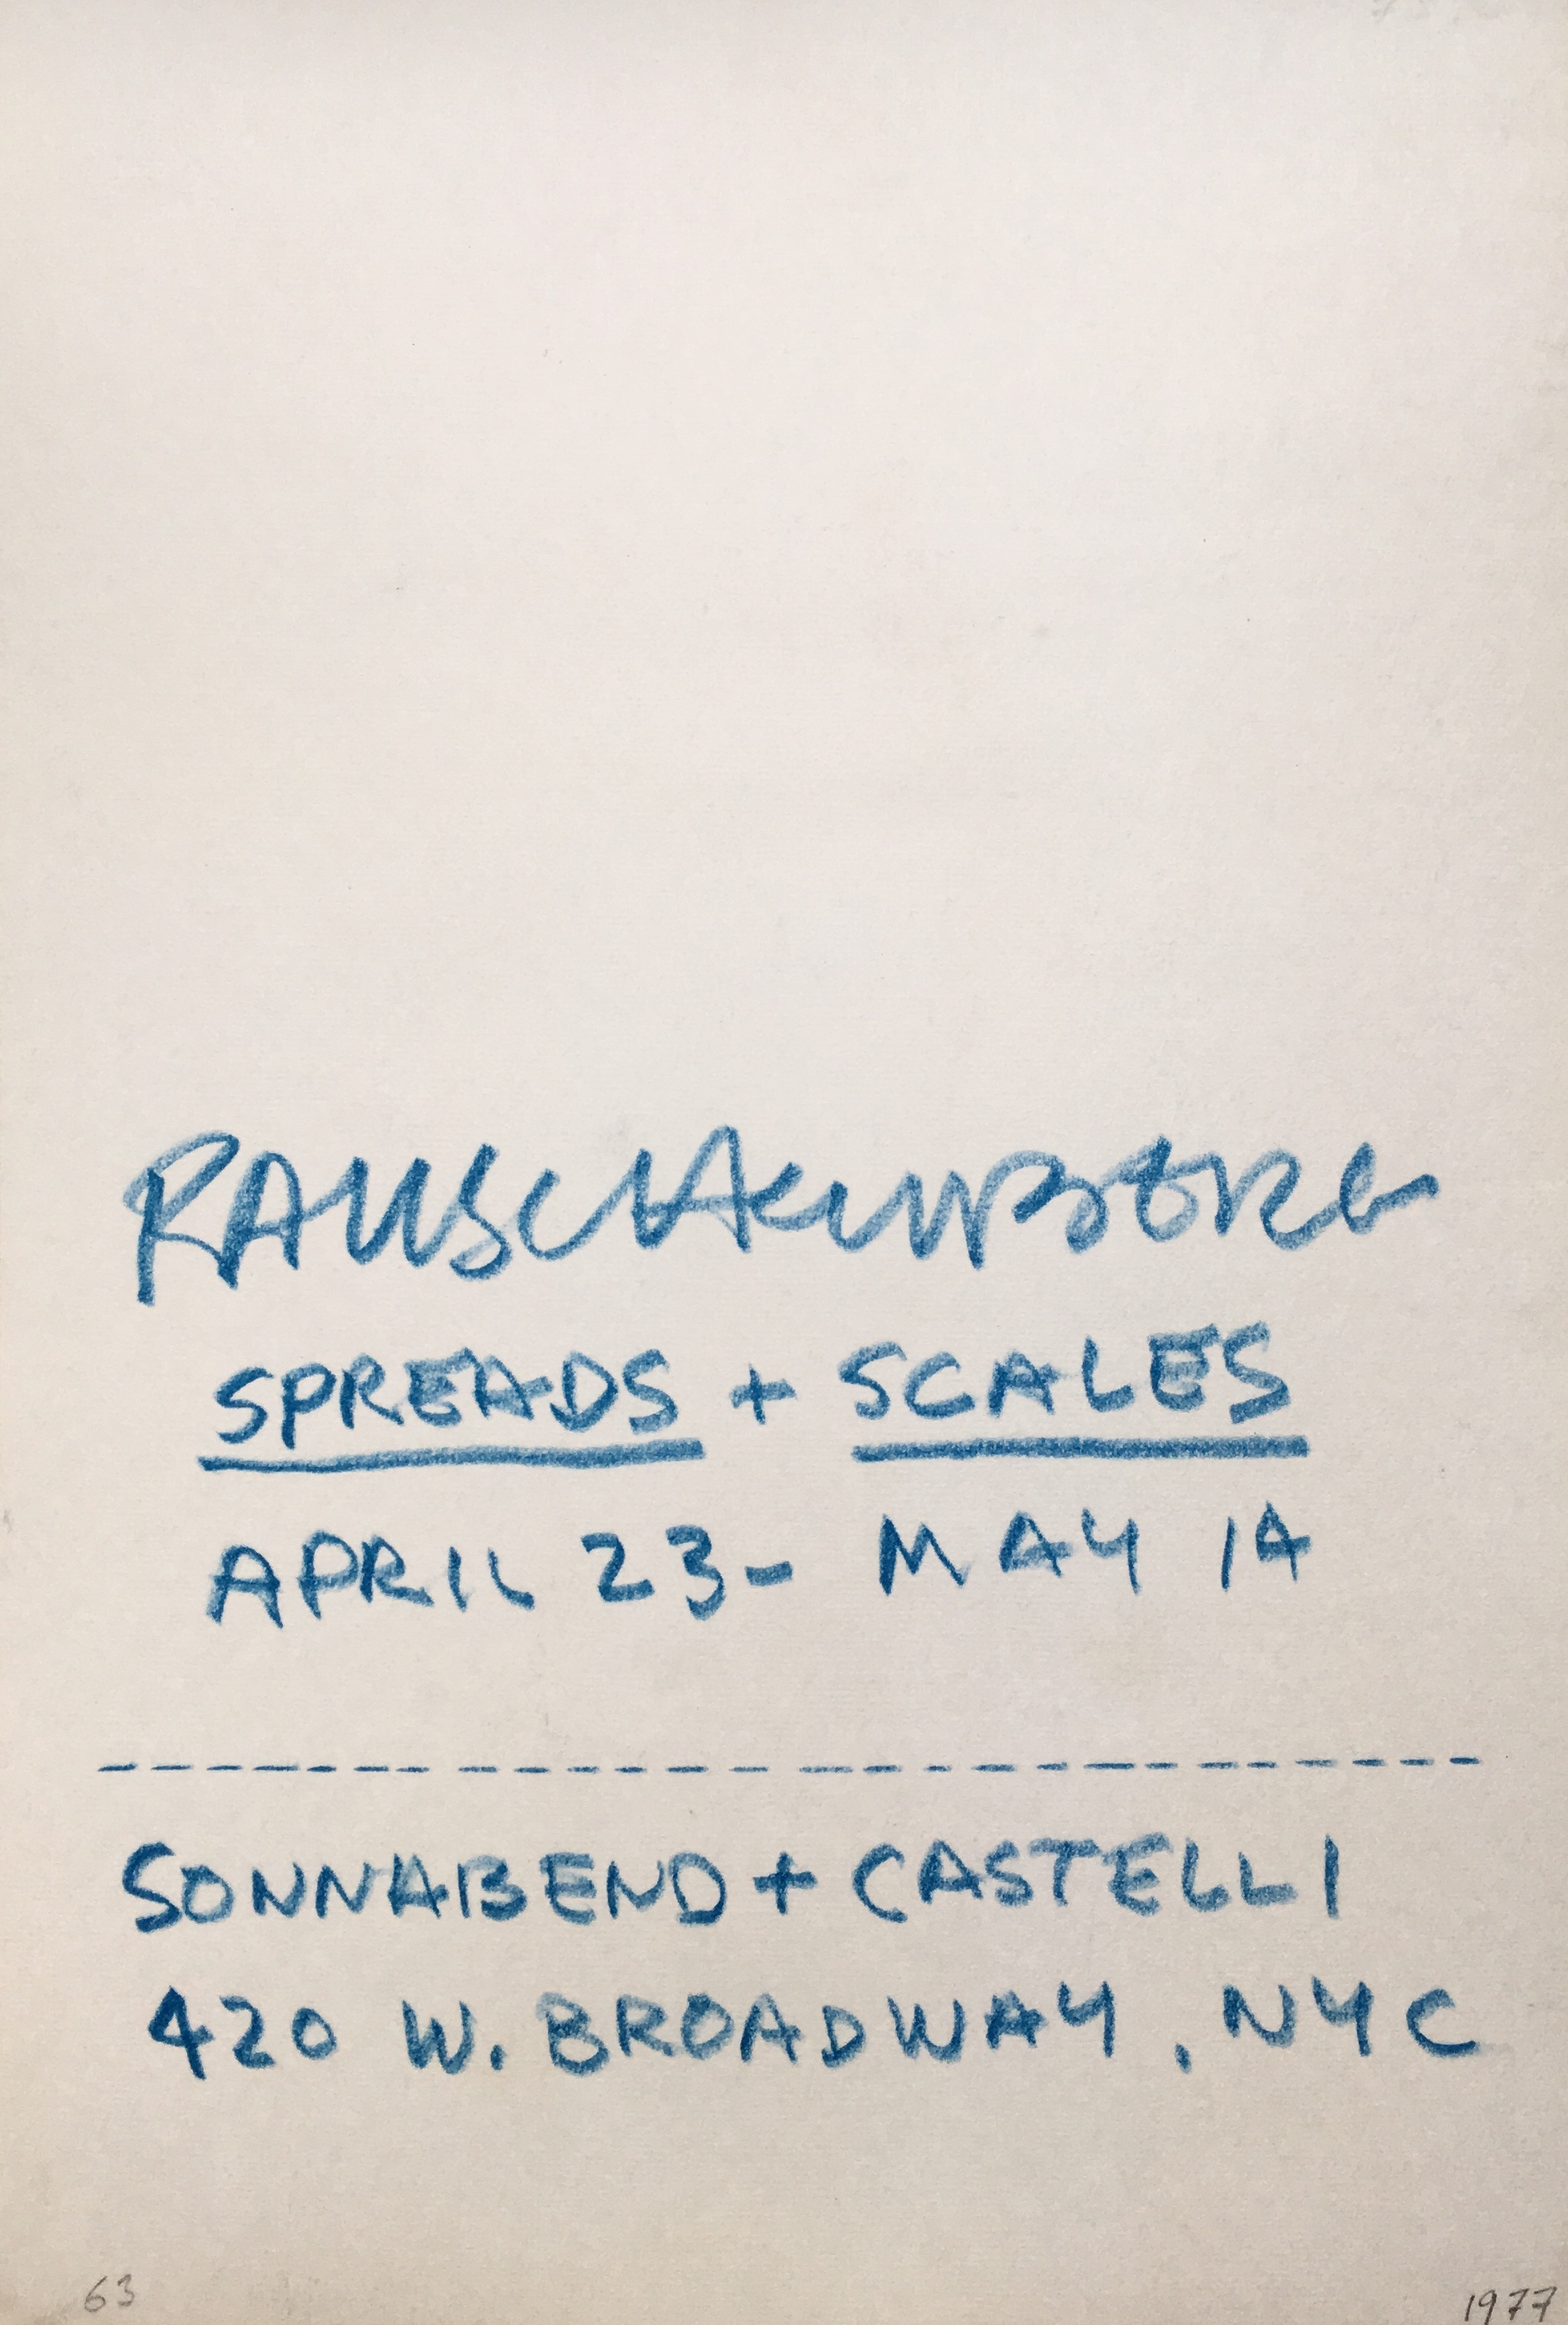 RAUSCHENBERG
SPREADS + SCALES
APRIL 23 - MAY 14
SONNABEND + CASTELLI
420 W. BROADWAY, NYC
63
1977